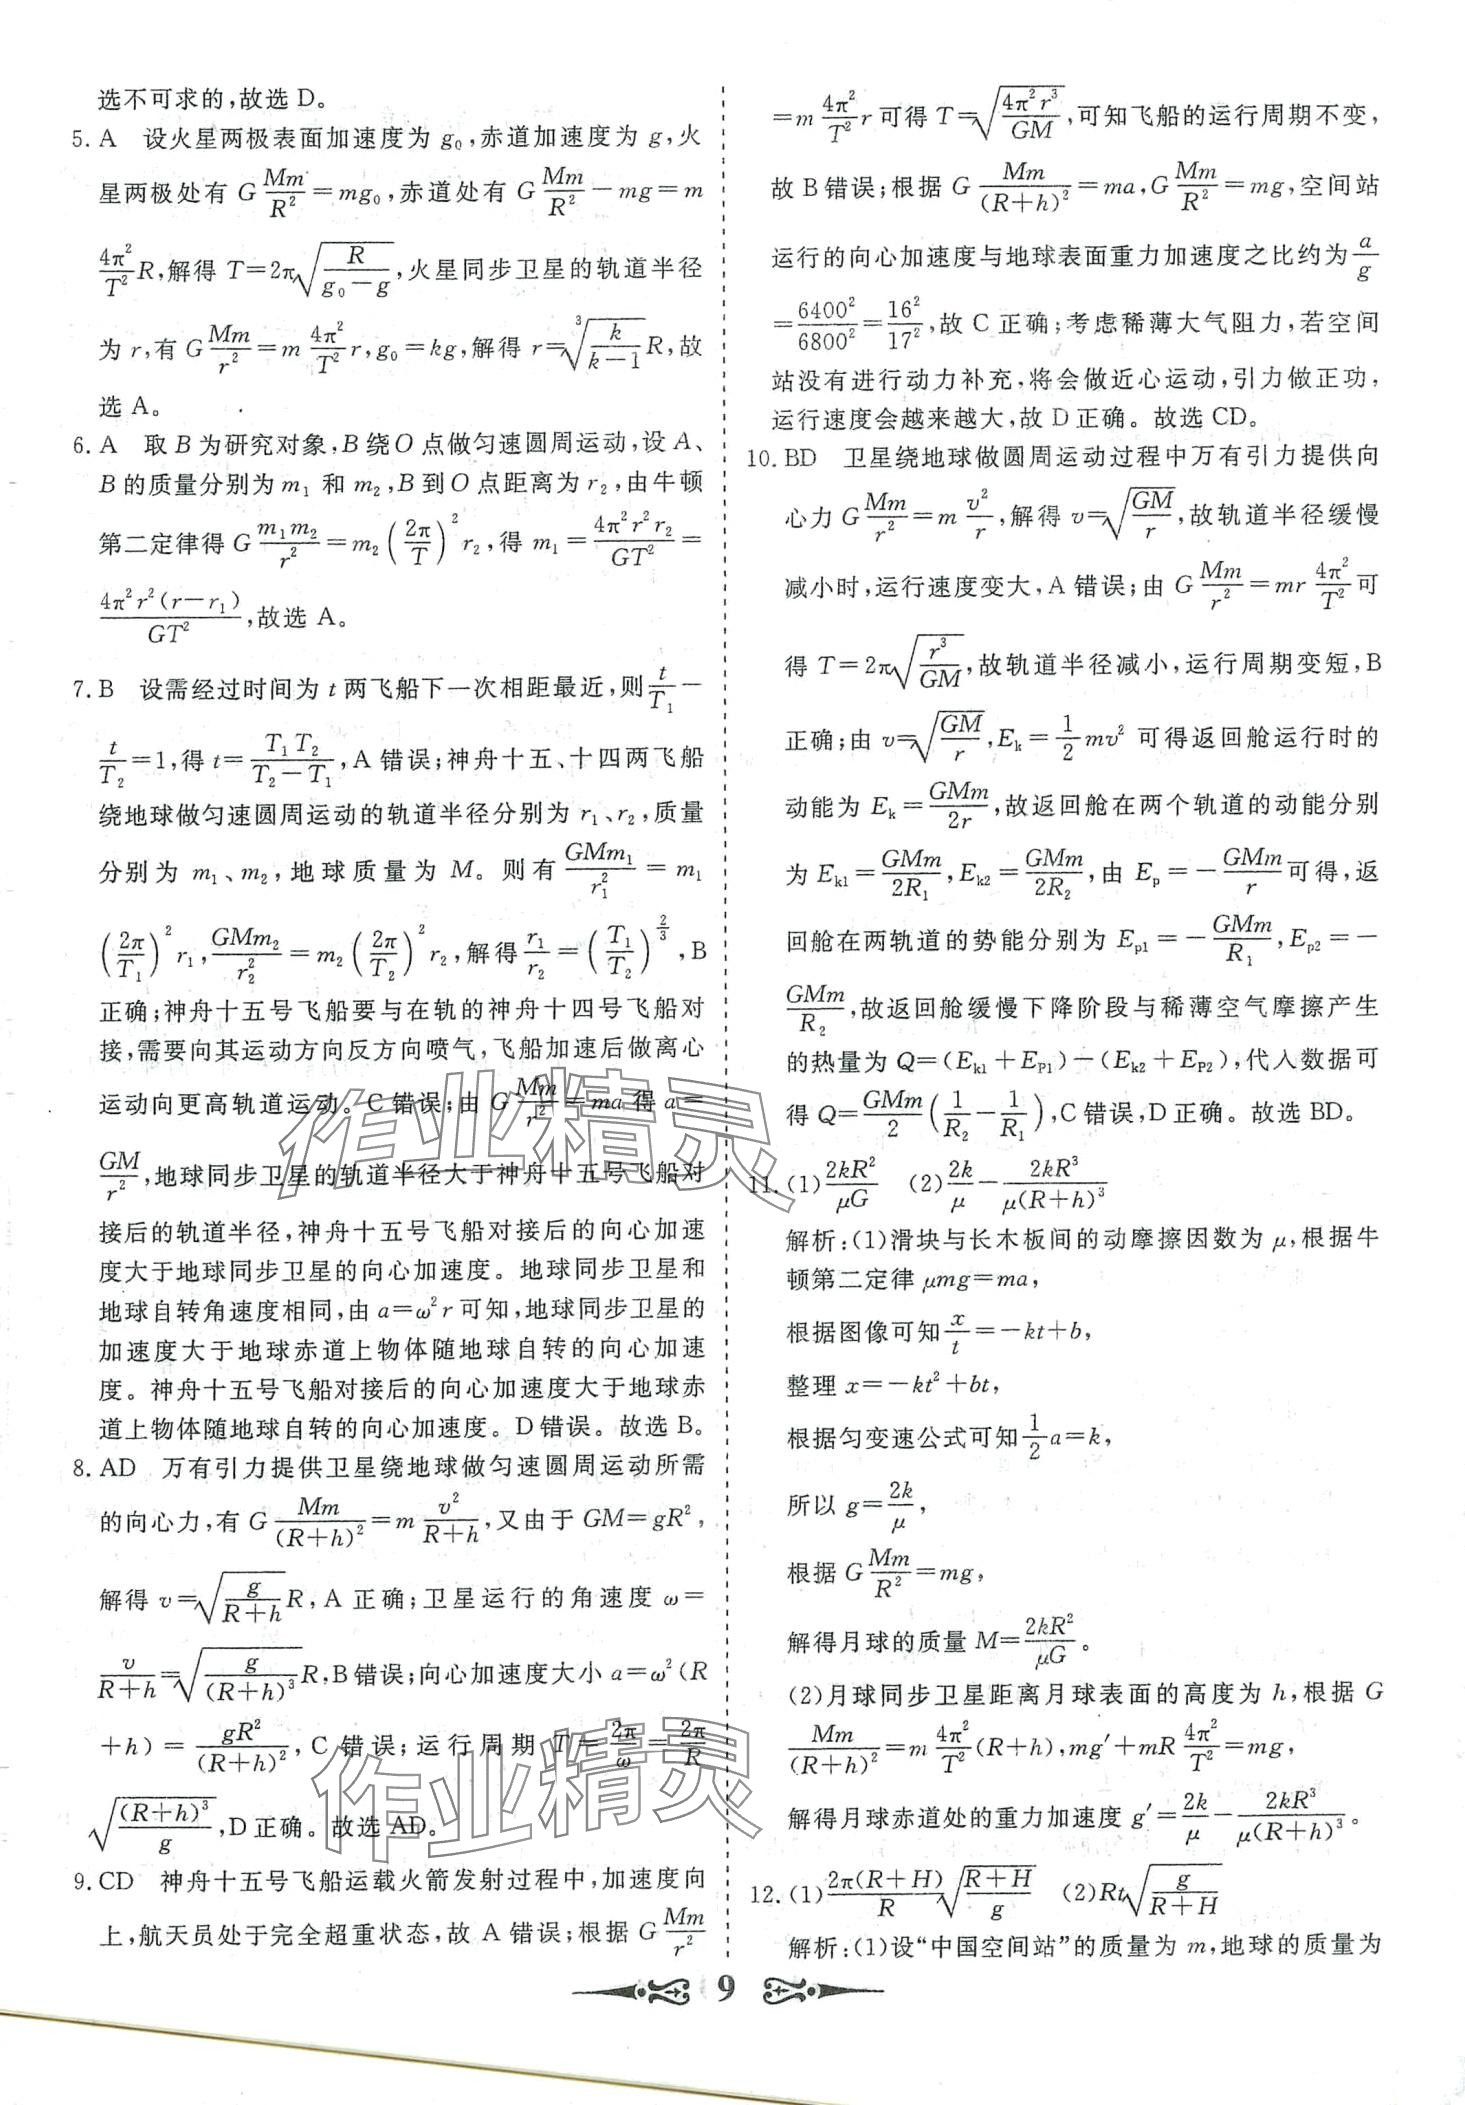 选不可求的,故选 D。
5. A 设火星两极表面加速度为 g₀,赤道加速度为 g,火
星两极处有 G Mm/R²=mg₀,赤道处有 G Mm/R²-mg=m
4π²/T² R,解得 T=2π√(R/(g₀-g)),火星同步卫星的轨道半径
为 r,有 G Mm/r²=m 4π²/T² r,g₀=kg,解得 r=∛(k/(k-1)) R,故
选 A。
6. A 取 B 为研究对象,B 绕 O 点做匀速圆周运动,设 A、
B 的质量分别为 m₁ 和 m₂,B 到 O 点距离为 r₂,由牛顿
第二定律得 G m₁m₂/r²=m₂(2π/T)² r₂,得 m₁=4π²r²r₂/GT²=
4π²r²(r-r₁)/GT²,故选 A。
7. B 设需经过时间为 t 两飞船下一次相距最近,则 t/T₁-
t/T₂=1,得 t=T₁T₂/(T₂-T₁),A 错误;神舟十五、十四两飞船
绕地球做匀速圆周运动的轨道半径分别为 r₁、r₂,质量
分别为 m₁、m₂,地球质量为 M。则有 GMm₁/r₁²=m₁
(2π/T₁)² r₁,GMm₂/r₂²=m₂(2π/T₂)² r₂,解得 r₁/r₂=(T₁/T₂)^(2/3),B
正确;神舟十五号飞船要与在轨的神舟十四号飞船对
接,需要向其运动方向反方向喷气,飞船加速后做离心
运动向更高轨道运动。C 错误;由 G Mm/r²=ma 得 a=
GM/r²,地球同步卫星的轨道半径大于神舟十五号飞船对
接后的轨道半径,神舟十五号飞船对接后的向心加速
度大于地球同步卫星的向心加速度。地球同步卫星和
地球自转角速度相同,由 a=ω²r 可知,地球同步卫星的
加速度大于地球赤道上物体随地球自转的向心加速
度。神舟十五号飞船对接后的向心加速度大于地球赤
道上物体随地球自转的向心加速度。D 错误。故选 B。
8. AD 万有引力提供卫星绕地球做匀速圆周运动所需
的向心力,有 G Mm/(R+h)²=m v²/(R+h),又由于 GM=gR²,
解得 v=√(g/(R+h)) R,A 正确;卫星运行的角速度 ω=
v/(R+h)=√(g/(R+h)³) R,B 错误;向心加速度大小 a=ω²(R
+h)=gR²/(R+h)²,C 错误;运行周期 T=2π/ω=2π/R
√((R+h)³/g),D 正确。故选 AD。
9. CD 神舟十五号飞船运载火箭发射过程中,加速度向
上,航天员处于完全超重状态,故 A 错误;根据 G Mm/r²
=m 4π²/T² r 可得 T=√(4π²r³/GM),可知飞船的运行周期不变,
故 B 错误;根据 G Mm/(R+h)²=ma,G Mm/R²=mg,空间站
运行的向心加速度与地球表面重力加速度之比约为 a/g
=6400²/6800²=16²/17²,故 C 正确;考虑稀薄大气阻力,若空间
站没有进行动力补充,将会做近心运动,引力做正功,
运行速度会越来越大,故 D 正确。故选 CD。
10. BD 卫星绕地球做圆周运动过程中万有引力提供向
心力 G Mm/r²=m v²/r,解得 v=√(GM/r),故轨道半径缓慢
减小时,运行速度变大,A 错误;由 G Mm/r²=mr 4π²/T² 可
得 T=2π√(r³/GM),故轨道半径减小,运行周期变短,B
正确;由 v=√(GM/r),Eₖ=1/2 mv² 可得返回舱运行时的
动能为 Eₖ=GMm/2r,故返回舱在两个轨道的动能分别
为 Eₖ₁=GMm/2R₁,Eₖ₂=GMm/2R₂,由 Eₚ=-GMm/r 可得,返
回舱在两轨道的势能分别为 Eₚ₁=-GMm/R₁,Eₚ₂=-
GMm/R₂,故返回舱缓慢下降阶段与稀薄空气摩擦产生
的热量为 Q=(Eₖ₁+E_P1)-(Eₖ₂+E_P2),代入数据可
得 Q=GMm/2(1/R₂-1/R₁),C 错误,D 正确。故选 BD。
11. (1)2kR²/μG (2)2k/μ-2kR³/μ(R+h)³
解析:(1)滑块与长木板间的动摩擦因数为 μ,根据牛
顿第二定律 μmg=ma,
根据图像可知 x/t=-kt+b,
整理 x=-kt²+bt,
根据匀变速公式可知 1/2 a=k,
所以 g=2k/μ,
根据 G Mm/R²=mg,
解得月球的质量 M=2kR²/μG。
(2)月球同步卫星距离月球表面的高度为 h,根据 G
Mm/(R+h)²=m 4π²/T² (R+h),mg′+mR 4π²/T²=mg,
解得月球赤道处的重力加速度 g′=2k/μ-2kR³/μ(R+h)³。
12. (1)2π(R+H)/R √((R+H)/g) (2)Rt√(g/(R+H))
解析:(1)设“中国空间站”的质量为 m,地球的质量为
9
作业精灵
作业精灵